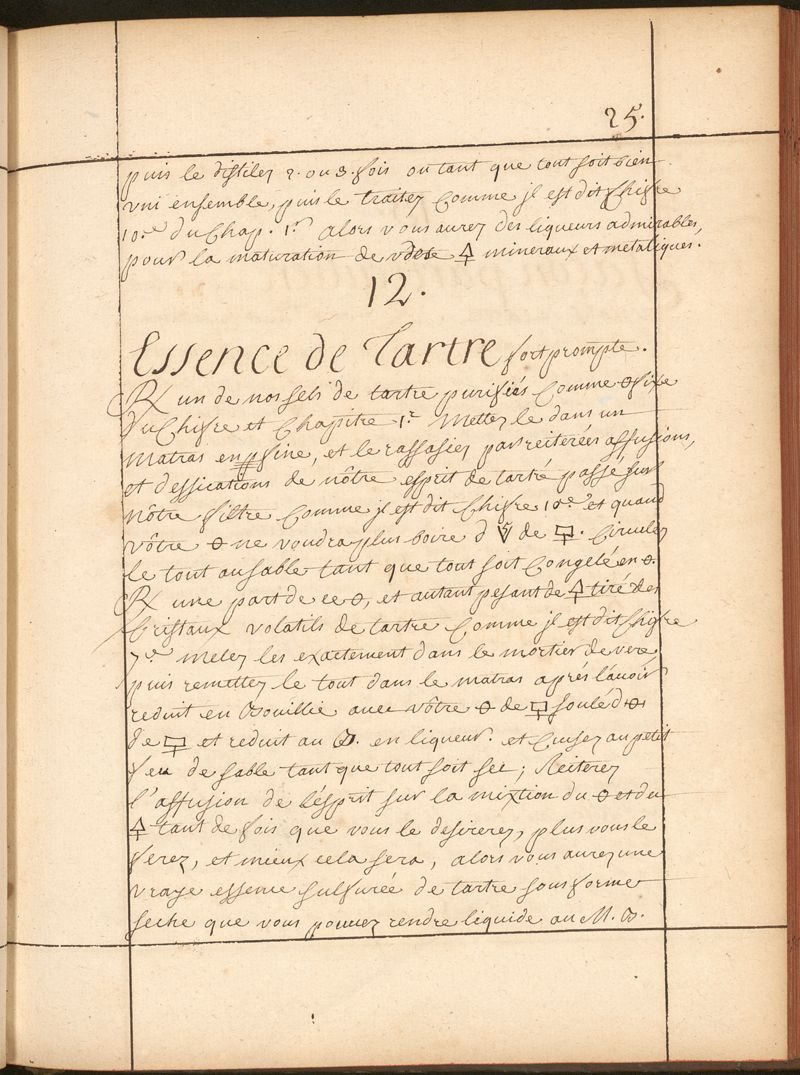 25.
puis le distilez 2. ou 3. fois ou tant que tout soit bien
vni ensemble, puis le traitez Comme jl est dit Chifre
10.e du Chap. 1.r alors vous aurez des liqueurs admirables,
pour la maturation de 🜍 mineraux et metaliques.
12.
Essence de Tartre fort prompte.
℞ un de nos sels de tartre purifiés Comme 🜔 fixe
du Chifre et Chapitre 1.r Mettez le dans un
Matras en fine, et le rassasiez par reiterées affusions,
et dessications de nôtre esprit de tartre passé sur
nôtre filtre Comme jl est dit Chifre 10.e et quand
vôtre 🜔 ne voudra plus boire d de 🜿. Circulez
le tout au sable tant que tout soit Congelé en 🜔.
℞ une part de ce 🜔, et autant pesant de 🜍 tiré des
Cristaux volatils de tartre Comme jl est dit Chifre
7.e Melez les exactement dans le mortier de vere
puis remettez le tout dans le matras aprés l'avoir
reduit en Bouillie avec vôtre 🜔 de 🜿 soulé d 🜔
de 🜿 et reduit au B. en liqueur. et Cuisez au petit
feu de sable tant que tout soit sec; Reiterez
l'affusion de l'ésprit sur la mixtion du 🜔 et du
🜍 tant de fois que vous le desirerez, plus vous le
ferez, et mieux cela sera, alors vous aurez une
vraye essence sulfurée de tartre sous forme
seche que vous pouvez rendre liquide au M. B.